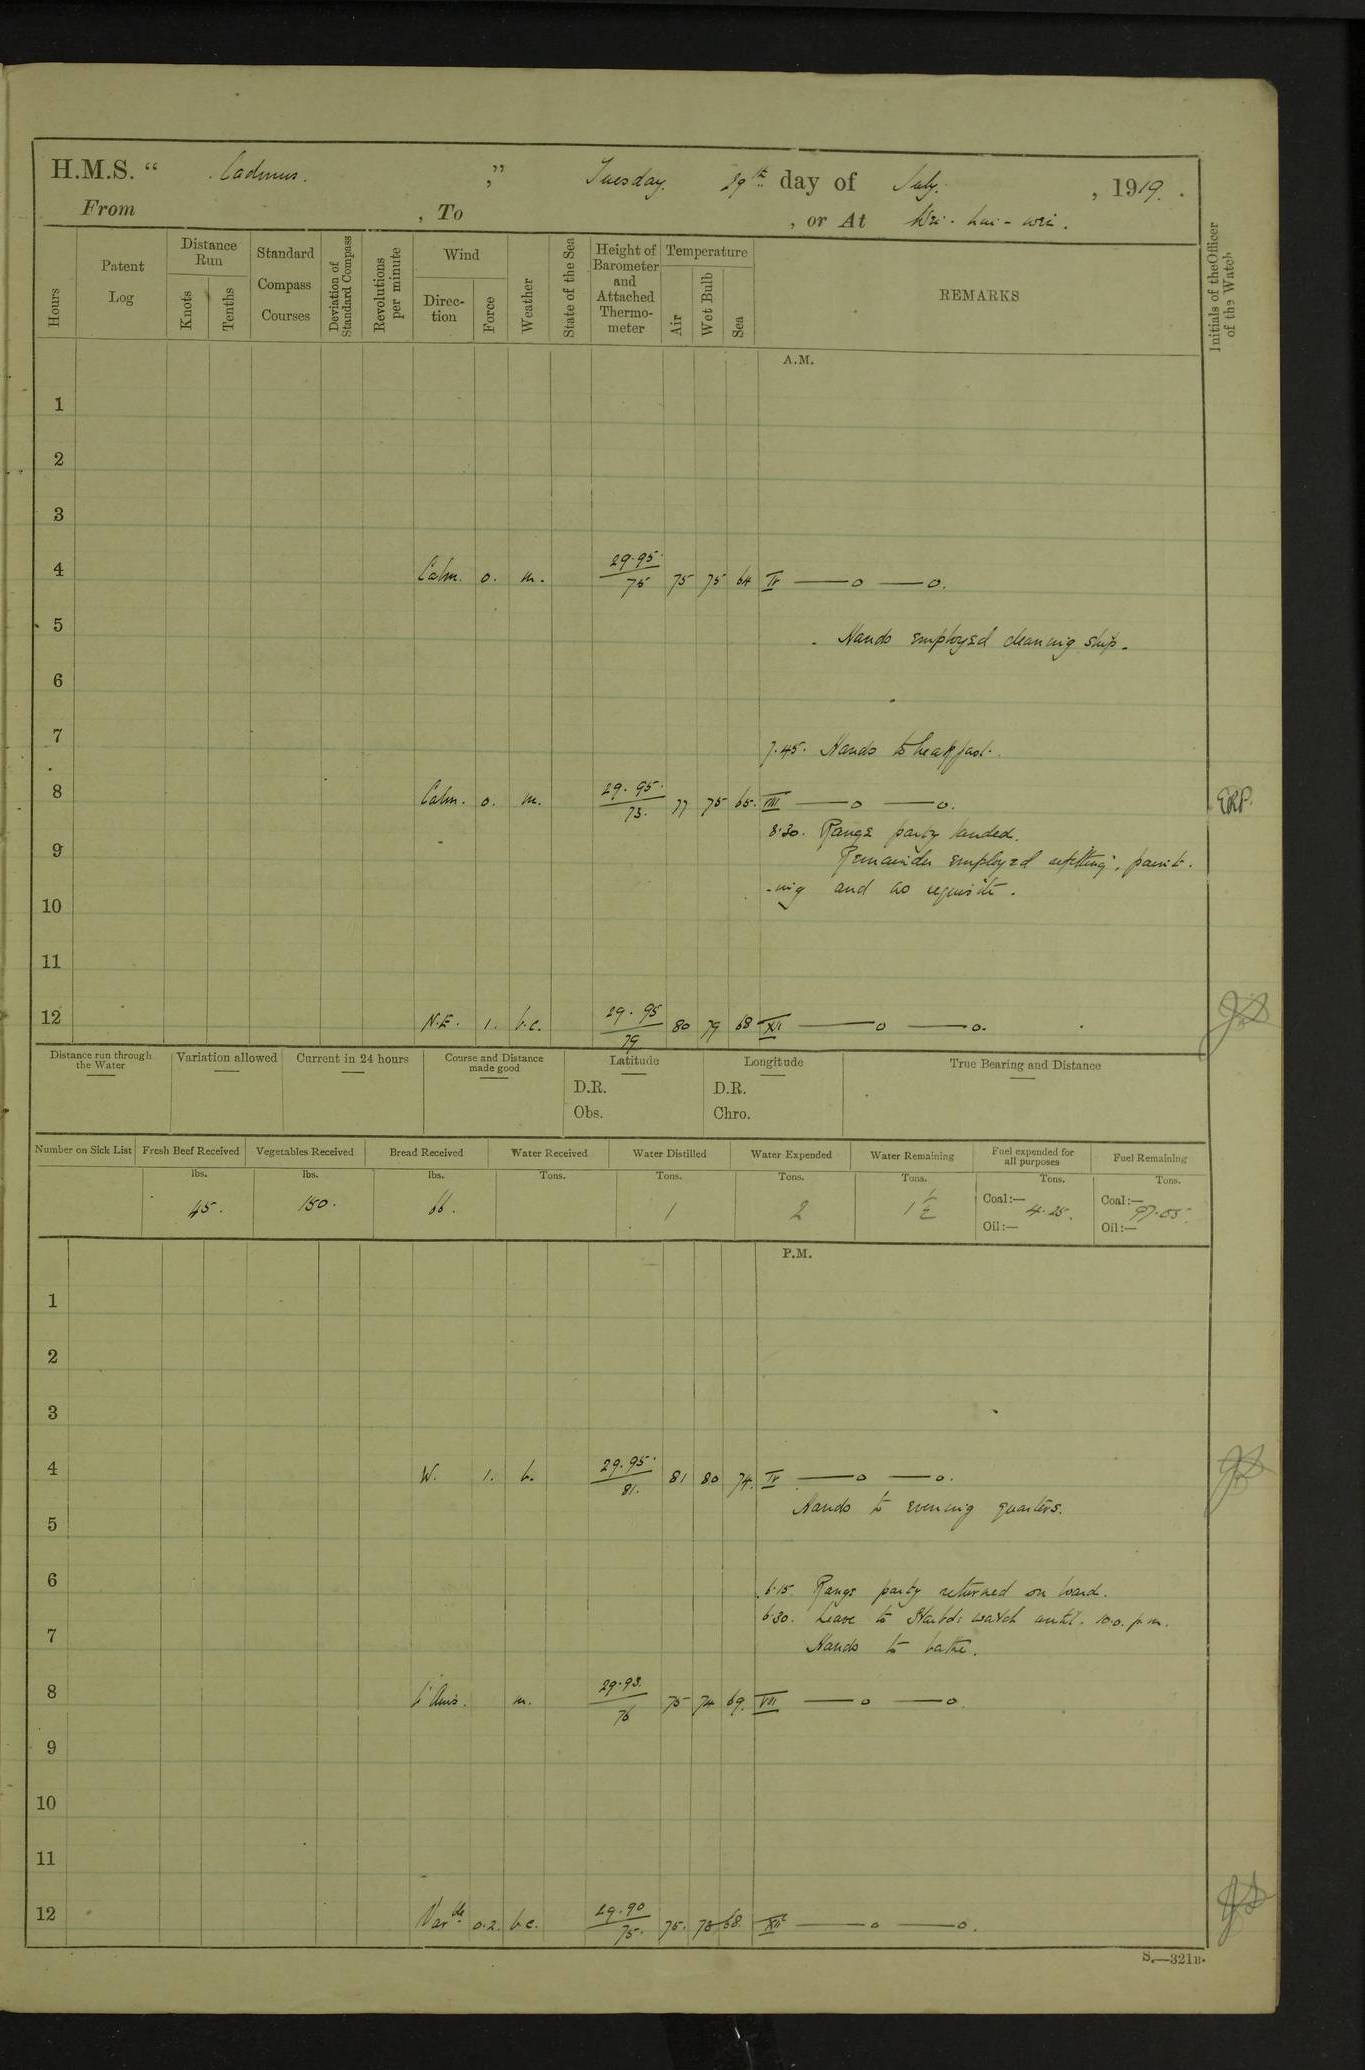 H.M.S. “ Cadmus. ,” Tuesday. 29th day of July. , 1919.
From , To , or At Wei-hai-wei.
Hours
Patent Log
Distance Run
Knots
Tenths
Standard Compass Courses
Deviation of Standard Compass
Revolutions per minute
Wind
Direc-tion
Force
Weather
State of the Sea
Height of Barometer and Attached Thermo-meter
Temperature
Air
Wet Bulb
Sea
REMARKS
Initials of the Officer of the Watch
A.M.
1
2
3
4 Calm. 0. m. 29.95 / 75 75 75 64 IV —o —o.
5 Hands employed cleaning ship.
6
7 7.45. Hands to breakfast.
8 Calm. 0. m. 29.95. / 73. 77 75 65. VIII —o —o. ERP.
8.30. Range party landed.
9 Remainder employed refitting, paint-
-ing and as requisite.
10
11
12 N.E. 1. b.c. 29.95 / 79 80 79 68 XII —o —o.
Distance run through the Water
Variation allowed
Current in 24 hours
Course and Distance made good
Latitude
D.R.
Obs.
Longitude
D.R.
Chro.
True Bearing and Distance
Number on Sick List
Fresh Beef Received
Vegetables Received
Bread Received
Water Received
Water Distilled
Water Expended
Water Remaining
Fuel expended for all purposes
Fuel Remaining
lbs. lbs. lbs. Tons. Tons. Tons. Tons. Tons. Tons.
45. 150. 66. 1 2 1 1/2 Coal:— 4.25. Coal:— 97.05.
Oil:— Oil:—
P.M.
1
2
3
4 W. 1. b. 29.95. / 81. 81 80 74. IV —o —o.
Hands to evening quarters.
5
6 6.15. Range party returned on board.
6.30. Leave to Starbd: watch until 10.0. p.m.
7 Hands to bathe.
8 m. 29.93. / 76 75 74 69. VIII —o —o.
9
10
11
12 Varble 0.2. b.c. 29.90 / 75. 75. 73 68. XII —o —o.
S.—321B.